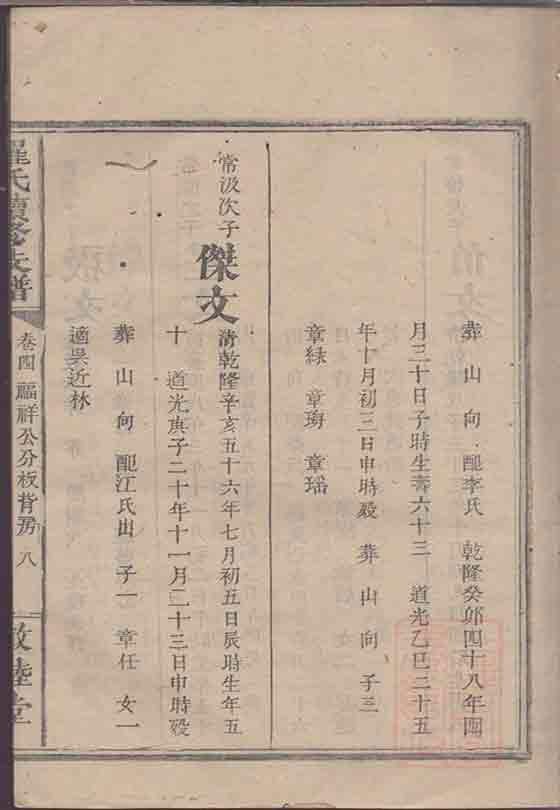 葬　山　向　配李氏　乾隆癸卯四十八年四
月三十日子時生壽六十三　道光乙巳二十五
年十月初三日申時歿　葬　山　向　子三
章緑　章珻　章瑶
常汲次子
傑文
清乾隆辛亥五十六年七月初五日辰時生年五
十　道光庚子二十年十一月二十三日申時歿
葬　山　向　配江氏出　子一　章任　女一
適吳近林
羅氏續修支譜
卷四　福祥公分板背房　八
敦睦堂